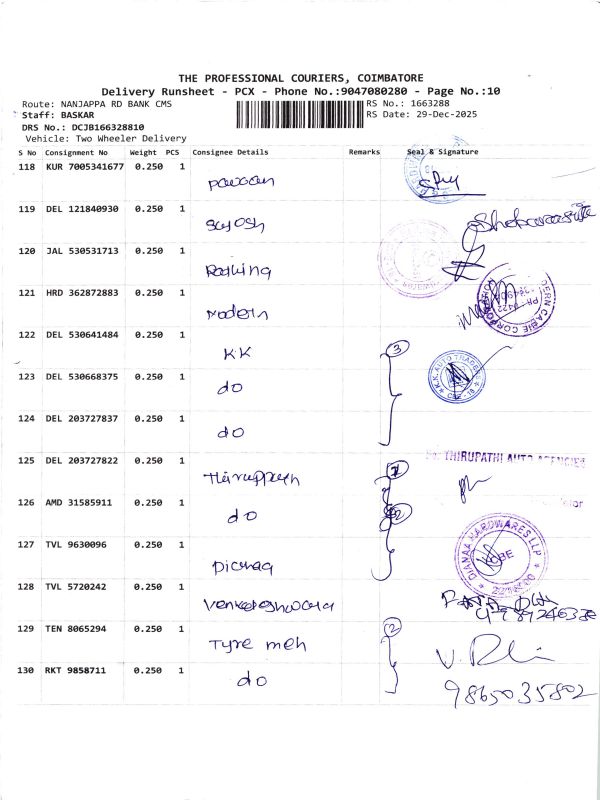 THE PROFESSIONAL COURIERS, COIMBATORE
Delivery Runsheet - PCX - Phone No.:9047080280 - Page No.:10
Route: NANJAPPA RD BANK CMS RS No.: 1663288
Staff: BASKAR RS Date: 29-Dec-2025
DRS No.: DCJB166328810
Vehicle: Two Wheeler Delivery
S No Consignment No Weight PCS Consignee Details Remarks Seal & Signature
118 KUR 7005341677 0.250 1
119 DEL 121840930 0.250 1
120 JAL 530531713 0.250 1
121 HRD 362872883 0.250 1
Modern
122 DEL 530641484 0.250 1
KK 3
123 DEL 530668375 0.250 1
do K.K. AUTO TRADERS
124 DEL 203727837 0.250 1
do
125 DEL 203727822 0.250 1
THIRUPATHI AUTO AGENCIES
126 AMD 31585911 0.250 1
do
127 TVL 9630096 0.250 1
DIANAA HARDWARES LLP
128 TVL 5720242 0.250 1
129 TEN 8065294 0.250 1
Tyre meh 2
130 RKT 9858711 0.250 1
do 9865035802